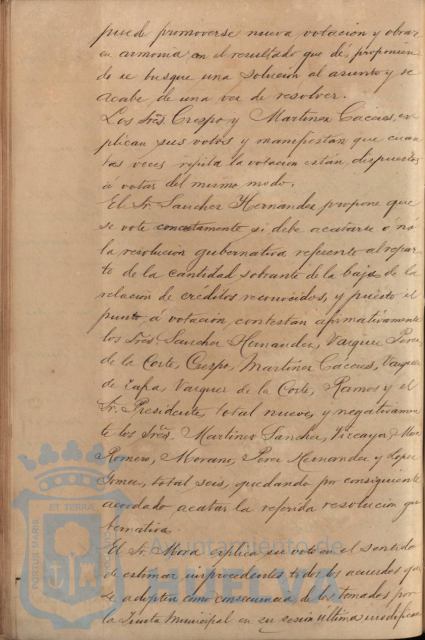 puede promoverse nueva votacion y obrar
en armonia con el resultado que dé, proponien
do se busque una solucion al asunto y se
acabe de una vez de resolver.
Los Sres. Crespo y Martinez Caceres, ex
plican sus votos y manifiestan que cuan
tas veces repita la votacion están dispuestos
á votar del mismo modo.
El Sr. Sanchez Hernandez propone que
se vote concretamente si debe acatarse ó nó
la resolucion gubernativa referente al repar
to de la cantidad sobrante de la baja de la
relacion de créditos reconocidos, y puesto el
punto á votacion, contestan afirmativamente
los Sres. Sanchez Hernandez, Vazquez Perez
de la Corte, Crespo, Martinez Caceres, Vazquez
de Zafra, Vazquez de la Corte, Ramos y el
Sr. Presidente, total nueve, y negativamen
te los Sres. Martinez Sanchez, Vizcaya, Mora
Romero, Morano, Perez Hernandez y Lopez
Gomez, total seis, quedando por consiguiente
acordado acatar la referida resolucion gu
bernativa.
El Sr. Mora explica su voto en el sentido
de estimar improcedentes todos los acuerdos que
se adopten como consecuencia de los tomados por
la Junta Municipal en su sesion última
PORTUS MARIS ET TERRAE CUSTODIA
Ayuntamiento de
HUELVA